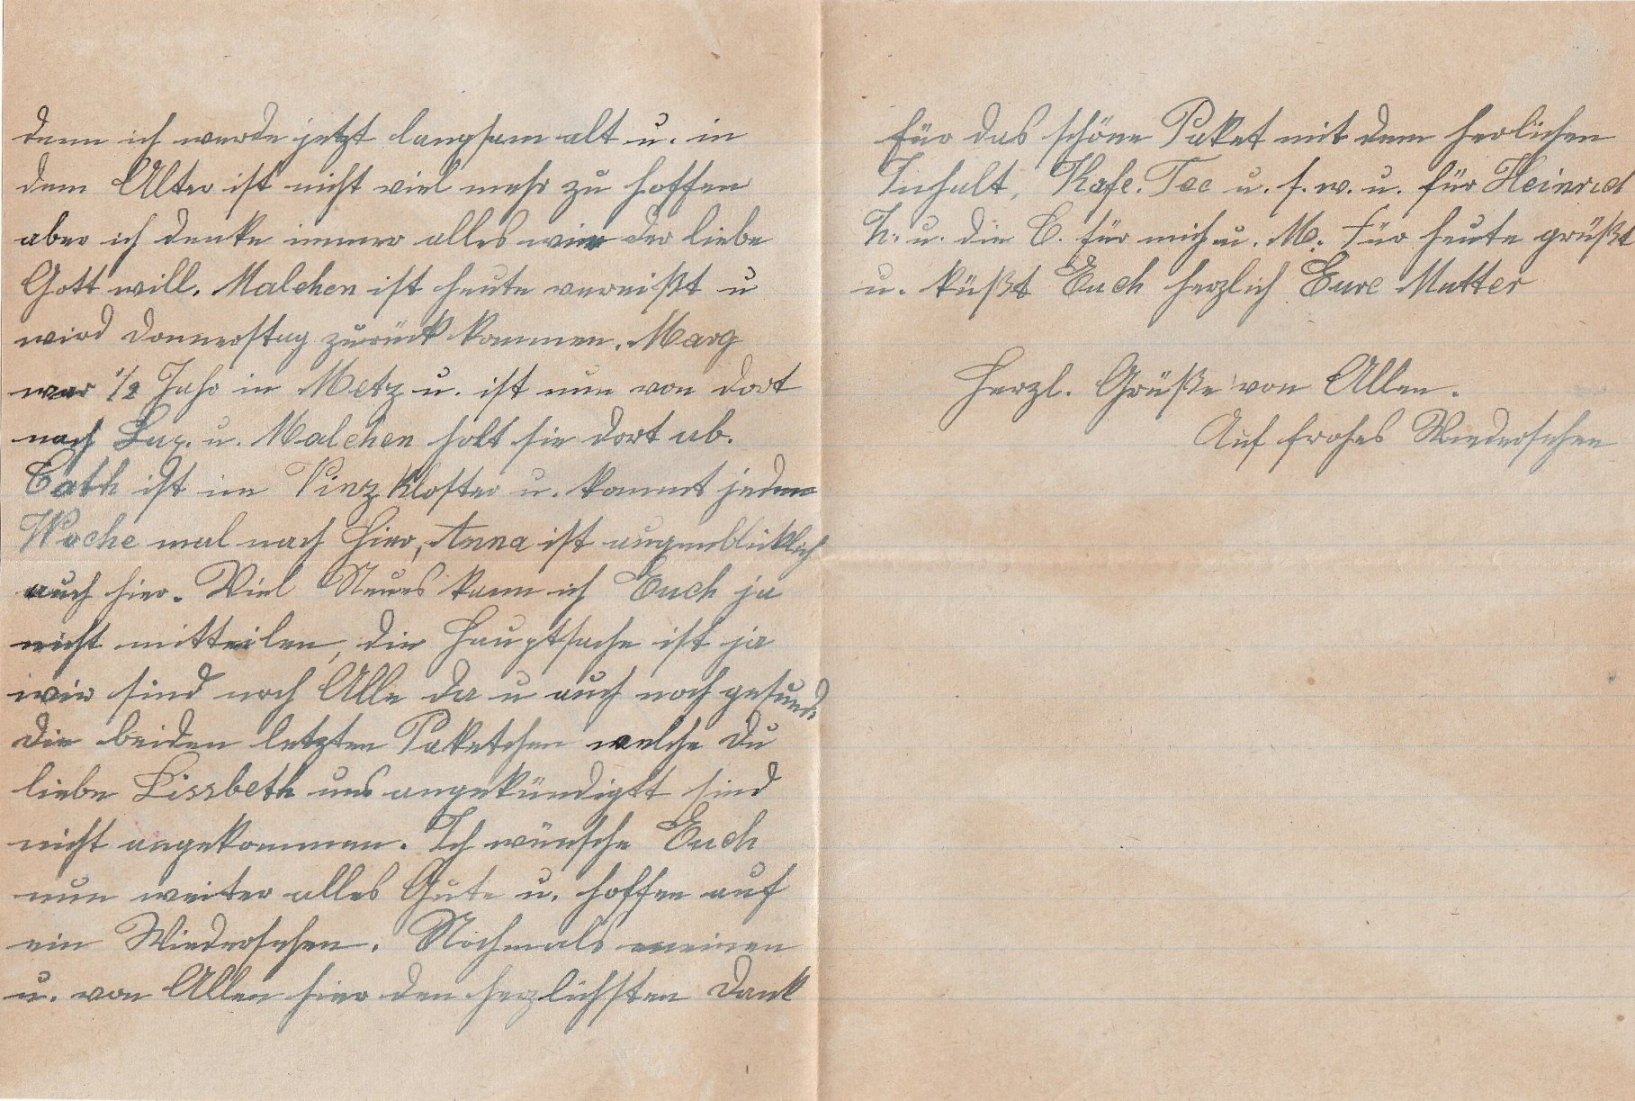 denn ich werde jetzt langsam alt u. in
dem Alter ist nicht viel mehr zu hoffen
aber ich denke immer alles wie der liebe
Gott will. Malchen ist heute verreißt u
wird Donnerstag zurück kommen. Marg
war 1/2 Jahr in Metz u. ist nun von dort
nach Lux. u. Malchen holt sie dort ab.
Cath ist im Vinz Kloster u. kommt jede
Woche mal nach hier, Anna ist augenblicklich
auch hier. Viel Neues kann ich Euch ja
nicht mitteilen, die Hauptsache ist ja
wir sind noch Alle da u auch noch gesund.
Die beiden letzten Paketchen welche Du
liebe Lissbeth uns angekündigtt sind
nicht angekommen. Ich wünsche Euch
nun weiter alles Gute u. hoffen auf
ein Wiedersehen. Nochmals meinen
u. von Allen hier den herzlichsten Dank
für das schöne Paket mit dem herlichen
Inhalt, Kafe. Tee u. s. w. u. für Heinrich
T. u. die C. für mich u. M. Für heute grüßt
u. küßt Euch herzlich Eure Mutter
Herzl. Grüße von Allen.
Auf frohes Wiedersehen